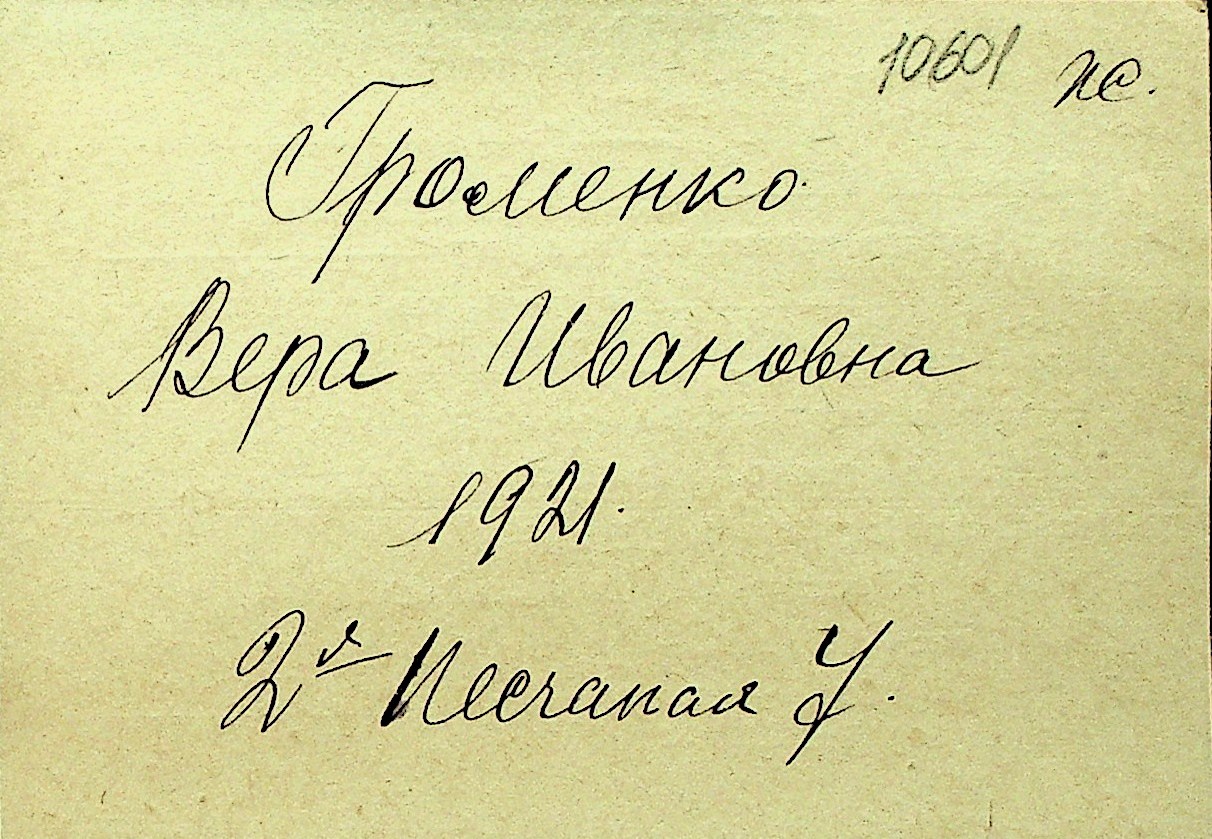 10601 пс.
Громенко
Вера Ивановна
1921.
2я Песчаная У.